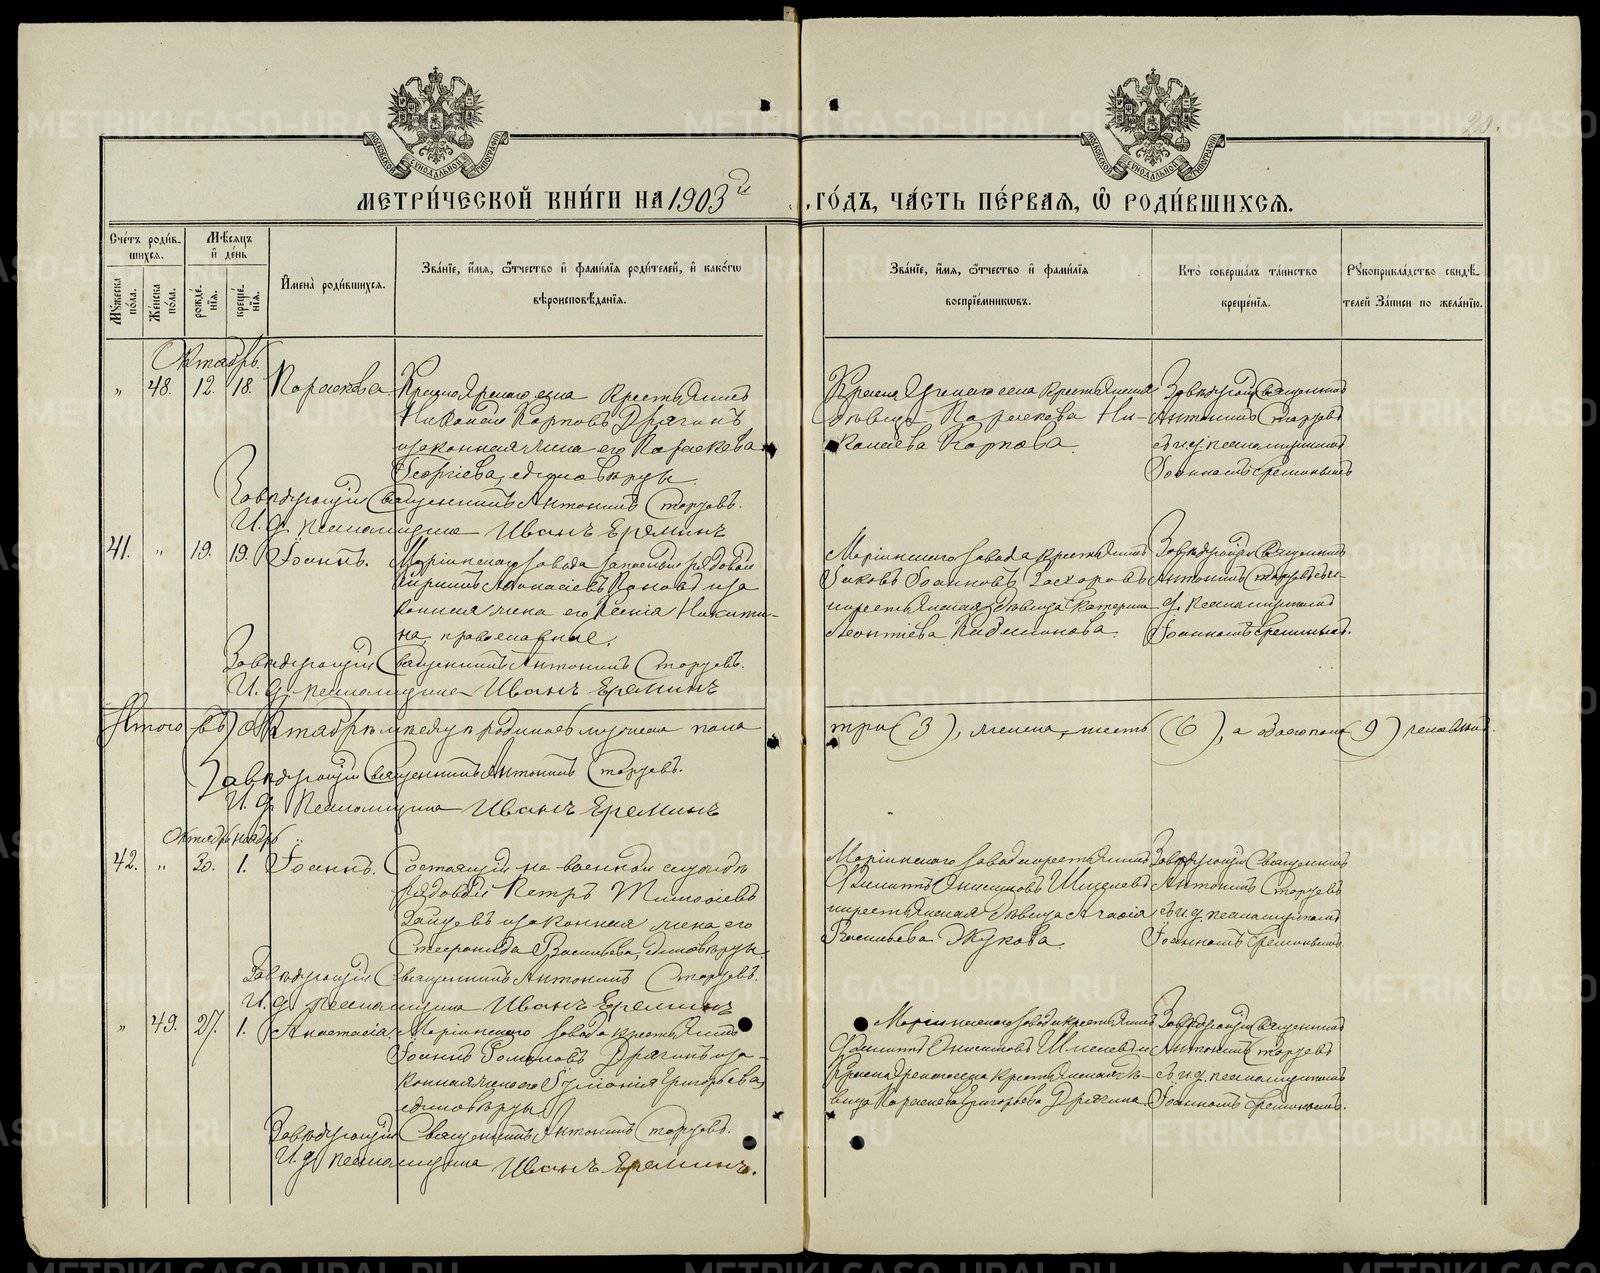 МЕТРИ́ЧЕСКОЙ КНИ́ГИ НА 1903й
ГО́ДЪ, ЧА́СТЬ ПЕ́РВАѦ, Ѡ҆ РОДИ́ВШИХСѦ.
Сче́тъ роди́в-
шихсѧ.
Мꙋ́жеска по́ла.
Же́нска по́ла.
Мѣ́сѧцъ и҆ де́нь
рожде́-
нїѧ.
креще́-
нїѧ.
И҆мена̀ роди́вшихсѧ.
Зва́нїе, и҆́мѧ, ѻ҆́тчество и҆ фами́лїѧ роди́телей, и҆ како́гѡ
вѣроисповѣ́данїѧ.
Зва́нїе, и҆́мѧ, ѻ҆́тчество и҆ фами́лїѧ
воспрїе́мникѡвъ.
Кто̀ соверша́лъ та́инство
креще́нїѧ.
Рꙋкоприкла́дство свидѣ́-
телей за́писи по жела́нїю.
Октябрь.
" 48. 12. 18. Параскева
Красноярскаго села крестьянинъ
Карповъ Дрягинъ
и законная жена его Параскева
Георгіева, единовѣрцы.
Красноярскаго села крестьянская
дѣвица Параскева Ни-
колаева Карпова.
Завѣдующій Священникъ
Антонинъ
съ и. д. псаломщикомъ
Іоанномъ Ереминымъ
Завѣдующій Священникъ Антонинъ
И. д. псаломщика Иванъ Ереминъ
41. " 19. 19. Іоаннъ.
Маріинскаго завода запасный рядовой
Аѳанасіевъ Пановъ и за-
конная жена его Ксенія Никити-
на, православные.
Маріинскаго завода крестьянинъ
Іаковъ Іоанновъ Захаровъ
и крестьянская дѣвица Екатерина
Леонтіева
Завѣдующій Священникъ
Антонинъ съ и.
д. псаломщикомъ
Іоанномъ Ереминымъ.
Завѣдующій Священникъ Антонинъ
И. д. псаломщика Иванъ Ереминъ
Итого въ октябрѣ мѣсяцѣ родилось мужеска пола
три (3), женска, шесть (6), а обоего пола (9) человѣкъ.
Завѣдующій Священникъ Антонинъ
И. д. псаломщика Иванъ Ереминъ
Октябрь Ноябрь
42. " 30. 1. Іоаннъ.
Состоящій на военной службѣ
рядовой Петръ Тимоѳіевъ
Зайцевъ и законная жена его
Стефанида Васильева, единовѣрцы.
Маріинскаго завода крестьянинъ
Филиппъ Онисимовъ Шмелевъ
и крестьянская дѣвица Агаѳія
Васильева Жукова.
Завѣдующій Священникъ
Антонинъ
съ и. д. псаломщикомъ
Іоанномъ Ереминымъ.
Завѣдующій Священникъ Антонинъ
И. д. псаломщика Иванъ Ереминъ
" 49. 27. 1. Анастасія.
Маріинскаго завода крестьянинъ
Іоаннъ Романовъ Дрягинъ и за-
конная жена его Григорьева,
единовѣрцы.
Маріинскаго завода крестьянинъ
Филиппъ Онисимовъ Шмелевъ и
Красноярскаго села крестьянская дѣ-
вица Параскева Григорьева Дрягина.
Завѣдующій Священникъ
Антонинъ
съ и. д. псаломщикомъ
Іоанномъ Ереминымъ.
Завѣдующій Священникъ Антонинъ
И. д. псаломщика Иванъ Ереминъ.
METRIKI.GASO-URAL.RU